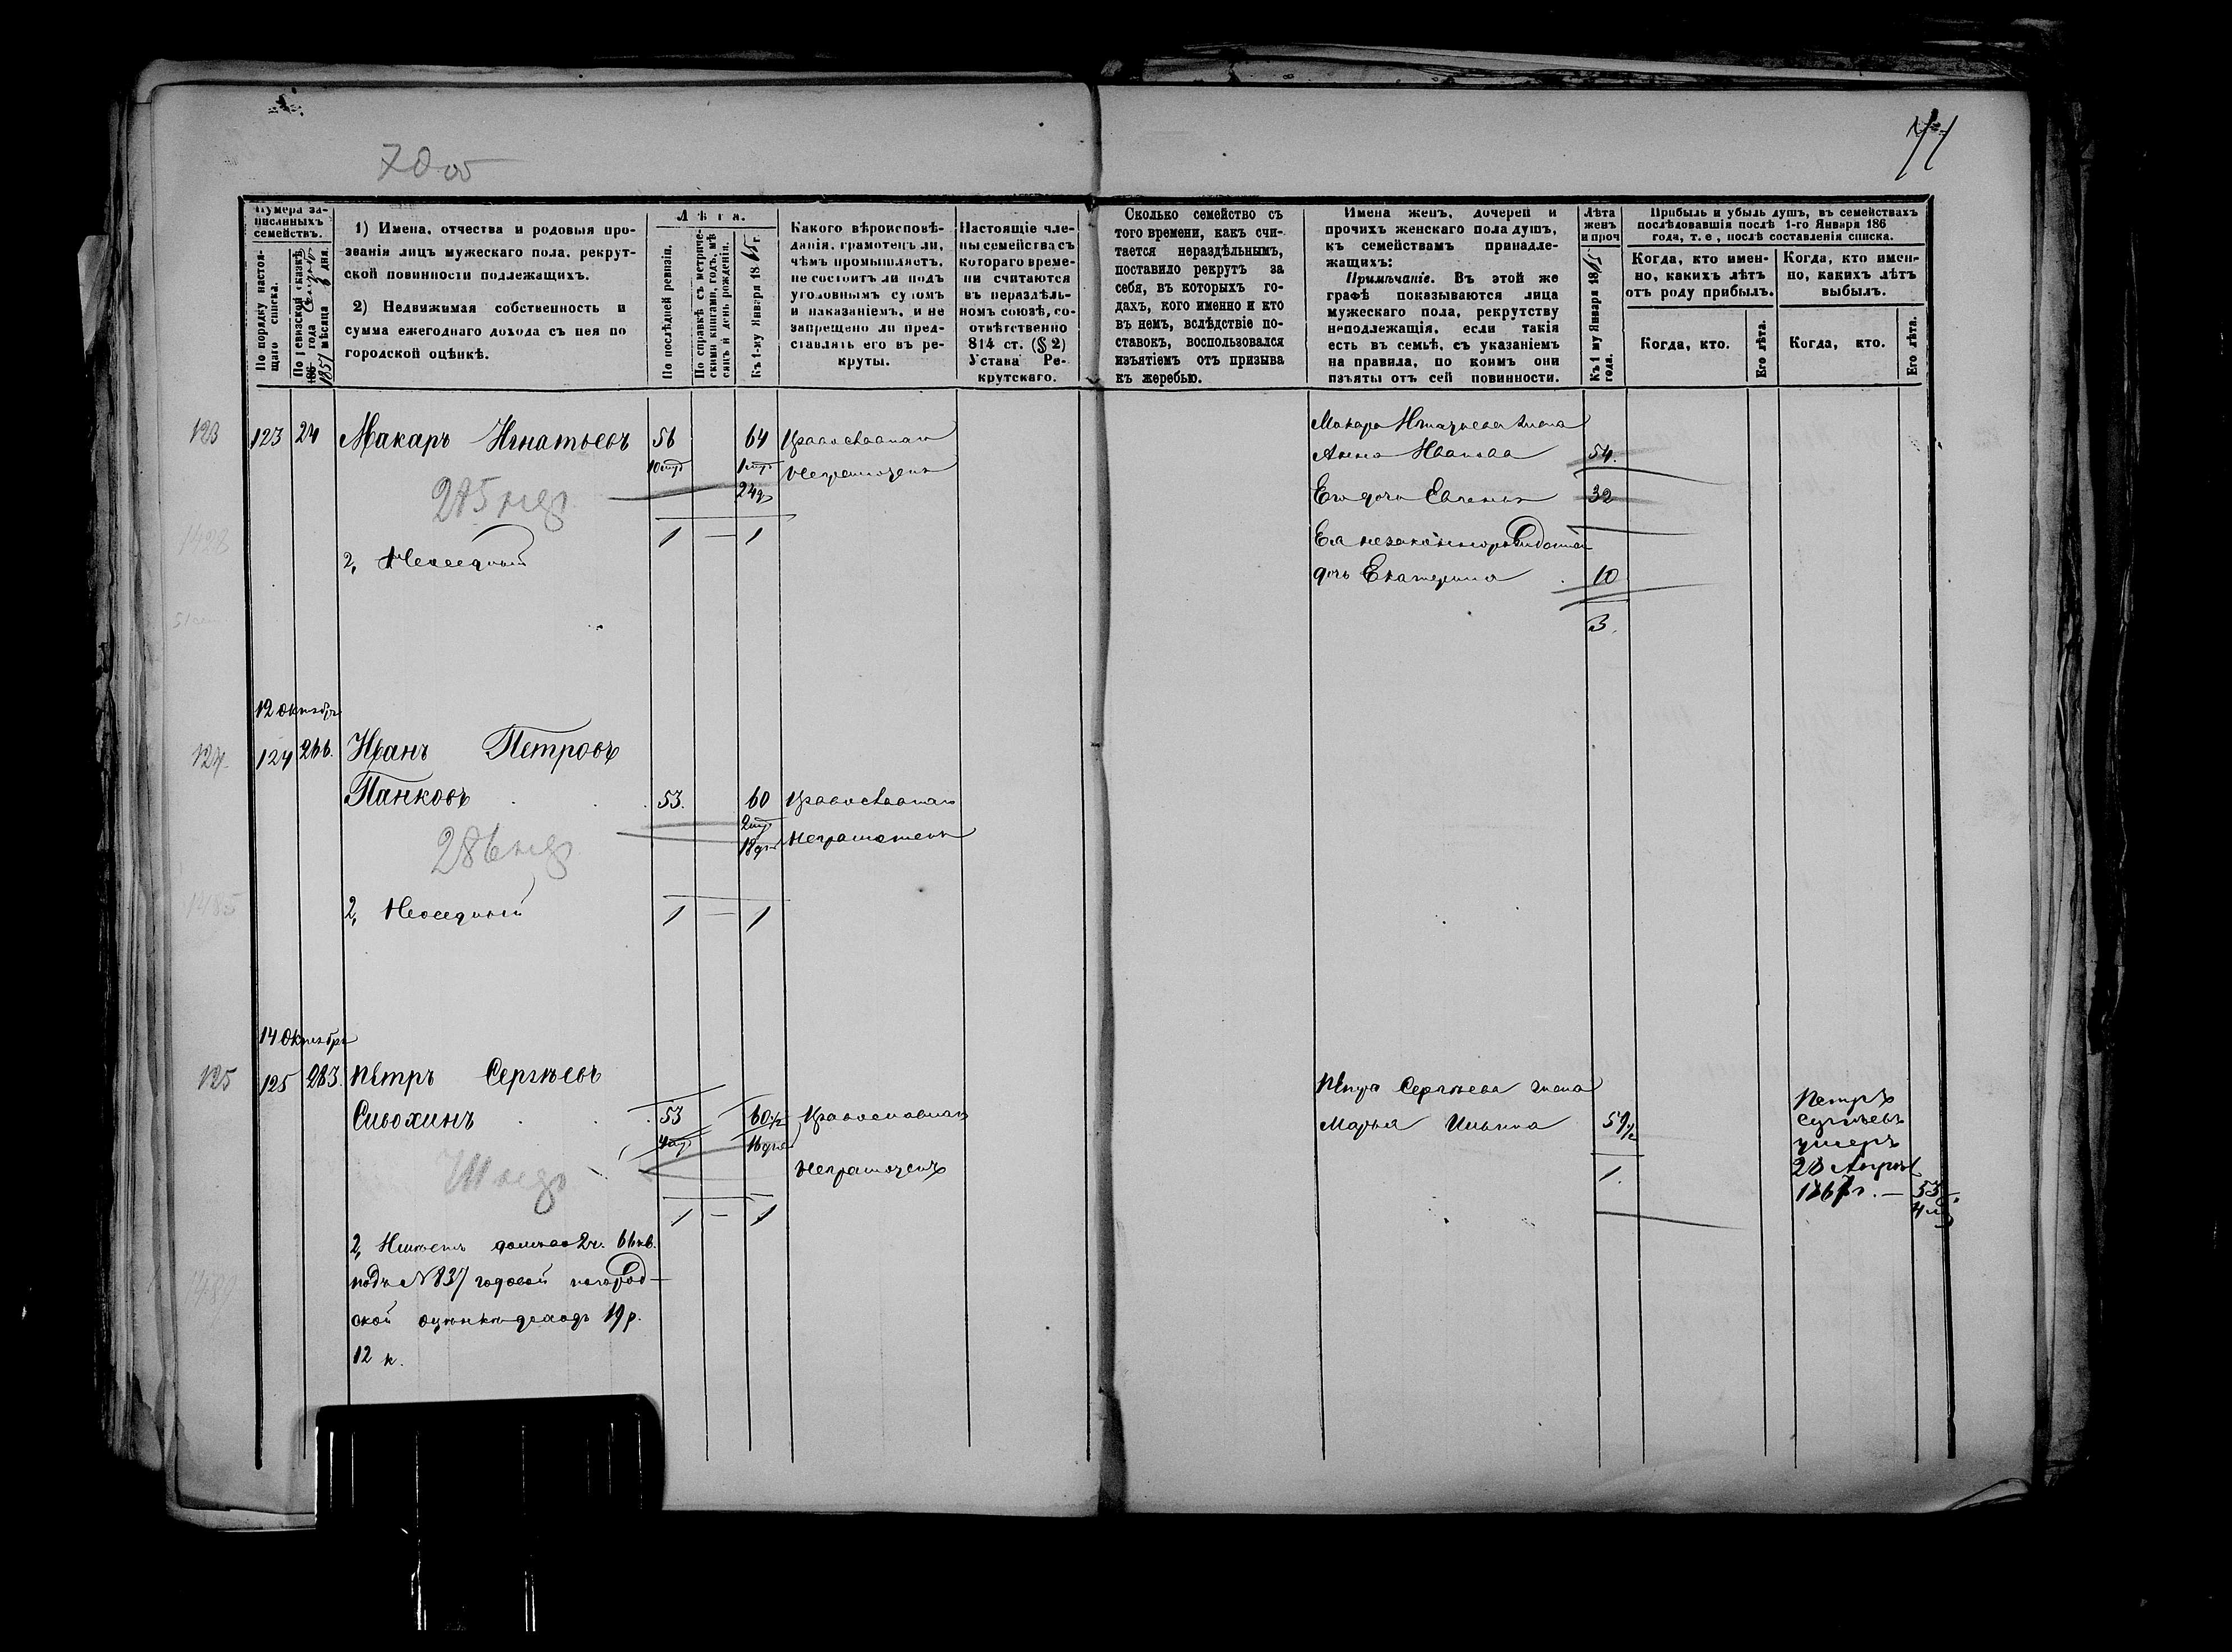 70 об
71
Нумера за-
писанныхъ
семействъ.
По порядку настоя-
щаго списка.
По ревизской сказкѣ
186 года
1857 мѣсяца 6 дня.
1) Имена, отчества и родовыя про-
званія лицъ мужескаго пола, рекрут-
ской повинности подлежащихъ.
2) Недвижимая собственность и
сумма ежегоднаго дохода съ нея по
городской оцѣнкѣ.
Лѣта.
По послѣдней ревизіи.
По справкѣ съ метриче-
скими книгами, годъ, мѣ
сяцъ и день рожденія.
Къ 1-му Января 1865 г.
Какого вѣроисповѣ-
данія, грамотенъ ли,
чѣмъ промышляетъ,
не состоитъ ли подъ
уголовнымъ судомъ
и наказаніемъ, и не
запрещено ли пред-
ставлять его въ ре-
круты.
Настоящіе чле-
ны семейства съ
котораго време-
ни считаются
въ нераздѣль-
номъ союзѣ, со-
отвѣтственно
814 ст. (§ 2)
Устава Ре-
крутскаго.
Сколько семейство съ
того времени, какъ счи-
тается нераздѣльнымъ,
поставило рекрутъ за
себя, въ которыхъ го-
дахъ, кого именно и кто
въ немъ, вслѣдствіе по-
ставокъ, воспользовался
изъятіемъ отъ призыва
къ жеребью.
Имена женъ, дочерей и
прочихъ женскаго пола душъ,
къ семействамъ принадле-
жащихъ:
Примѣчаніе. Въ этой же
графѣ показываются лица
мужескаго пола, рекрутству
неподлежащія, если такія
есть въ семьѣ, съ указаніемъ
на правила, по коимъ они
изъяты отъ сей повинности.
Лѣта
женъ
и проч
Къ 1 му Января 1865
года.
Прибыль и убыль душъ, въ семействахъ
послѣдовавшія послѣ 1-го Января 186
года, т. е., послѣ составленія списка.
Когда, кто имен-
но, какихъ лѣтъ
отъ роду прибылъ.
Когда, кто имен-
но, какихъ лѣтъ
выбылъ.
Когда, кто.
Его лѣта.
Когда, кто.
Его лѣта.
123
123 24 Макаръ Игнатьевъ 56 64 Православнаго
Неграмотенъ
24 д
285 нед
1 — 1
2, Неоседлый
Макара Игнатьева жена
Анна Иванова 54.
Его дочь Евгенія 32
Ея незаконнорожденная
дочь Екатерина 10
3.
12 Октября
124
124 266. Иванъ Петровъ
Панковъ 53. 60 Православнаго
18 дн Неграмотенъ
286 нед
2, Неоседлый 1 — 1
14 Октября
125
125 283. Петръ Сергѣевъ
53 60 1/2 Православнаго
16 дне
Неграмотенъ
1 — 1
2, Имѣетъ домъ во 2 ч. 66 кв.
подъ № 837 годовой по город-
ской оцѣнкѣ доходъ 19 р.
12 к.
Петра Сергѣева жена
Марья Ильина 59 1/2
1.
Петръ
Сергѣевъ
умеръ
28 Апрѣл
1867 г. — 53